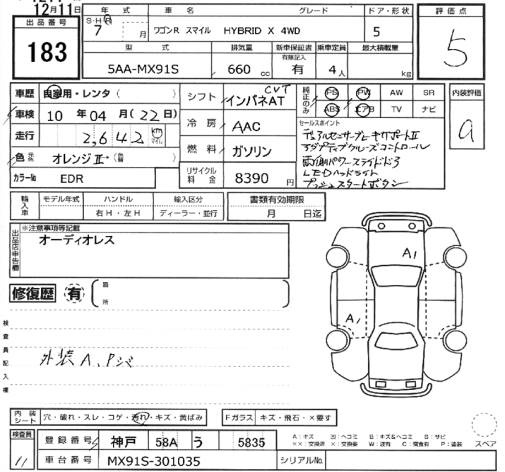 12月11日
出品番号
183
年式
S・H・R
7
月
車名
ワゴンR スマイル HYBRID X 4WD
グレード
ドア・形状
5
評価点
5
型式
5AA-MX91S
排気量
660 cc
新車保証書
有限記入
有
乗車定員
4人
最大積載量
kg
車歴
自家用・レンタ( )
車検
10年04月(22日)
走行
2,642 km
マイル
色
オレンジⅡ→( )
カラーNo
EDR
シフト
インパネAT
CVT
冷房
AAC
燃料
ガソリン
リサイクル料金
8390 円
純正品のみ
PS PW AW SR
ABS エアB TV ナビ
セールスポイント
デュアルセンサーブレーキサポートⅡ
アダプティブクルーズコントロール
両側パワースライドドア
LEDヘッドライト
プッシュスタートボタン
内装評価
a
輸入車
モデル年式
ハンドル
右H・左H
輸入区分
ディーラー・並行
書類有効期限
月 日迄
出品店申告欄
※注意事項等記載
オーディオレス
修復歴
有
箇所
検査員記入欄
外装A、Pジ
A1
A1
内装シート
穴・破れ・スレ・コゲ・汚れ・キズ・黄ばみ
Fガラス
キズ・飛石・×要す
スペア
検査員
11
登録番号
神戸 58A う 5835
車台番号
MX91S-301035
シリアルNo.